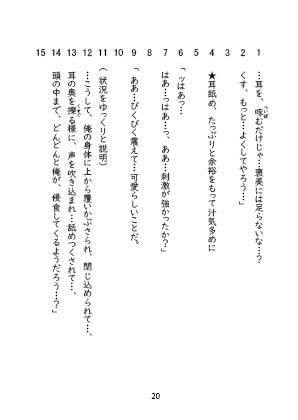 1 …耳を、啄むだけじゃ…褒美には足らないな…?
2 くす、もっと…よくしてやろう…」
3
4 ★耳舐め、たっぷりと余裕をもって汁気多めに
5
6 「ッはあっ…
7 はあ…っはあ…っ、ああ…刺激が強かったか?」
8
9 「ああ…びくびく震えて…可愛らしいことだ。
10
11 (状況をゆっくりと説明)
12 …こうして、俺の身体に上から覆いかぶさられ、閉じ込められて…、
13 耳の奥を擽る様に、声を吹き込まれ…舐めつくされて…、
14 頭の中まで、どんどんと俺が、侵食してくるようだろう…?」
15
20